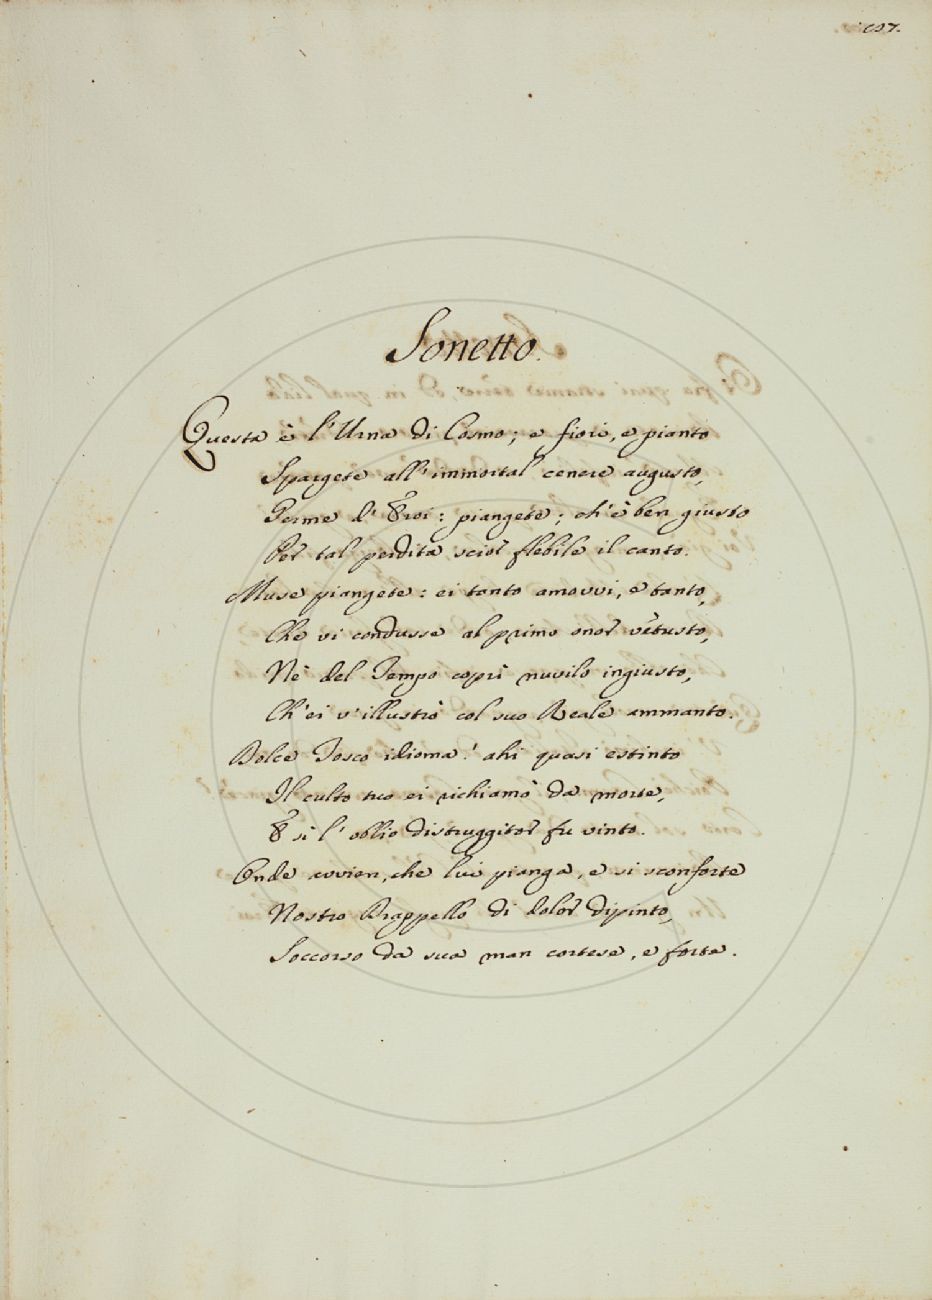 Sonetto.
Questa è l'Urna di Cosmo; e fiori, e pianto
Spargete all'immortal cenere augusto,
Germe d'Eroi: piangete; ch'è ben giusto
Per tal perdita scior flebile il canto.
Muse piangete: ei tanto amovvi, e tanto,
Che vi condusse al primo onor vetusto,
Nè del Tempo coprì nuvilo ingiusto,
Ch'ei v'illustrò col suo Reale ammanto.
Dolce Tosco idioma! ahi quasi estinto
Il culto tuo ei richiamò da morte,
E sì l'obblio distruggitor fu vinto.
Onde avvien, che lui pianga, e si sconforte
Nostro Drappello di dolor dipinto,
Soccorso da sua man cortese, e forte.